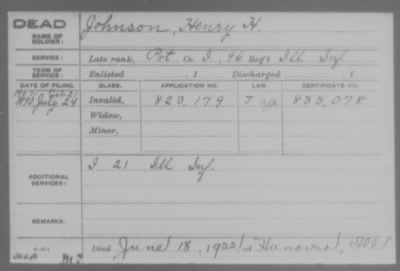 DEAD
NAME OF SOLDIER: Johnson, Henry H.
SERVICE: Late rank, Pvt Co. I, 96 Reg't Ill Inf.
TERM OF SERVICE: Enlisted , 1 Discharged , 1
DATE OF FILING. CLASS. APPLICATION NO. LAW. CERTIFICATE NO.
1890 July 24 Invalid, 823,179 J 833,078
Widow,
Minor,
ADDITIONAL SERVICES: I 21 Ill Inf.
REMARKS:
Died June 18, 1922 at Hanover,